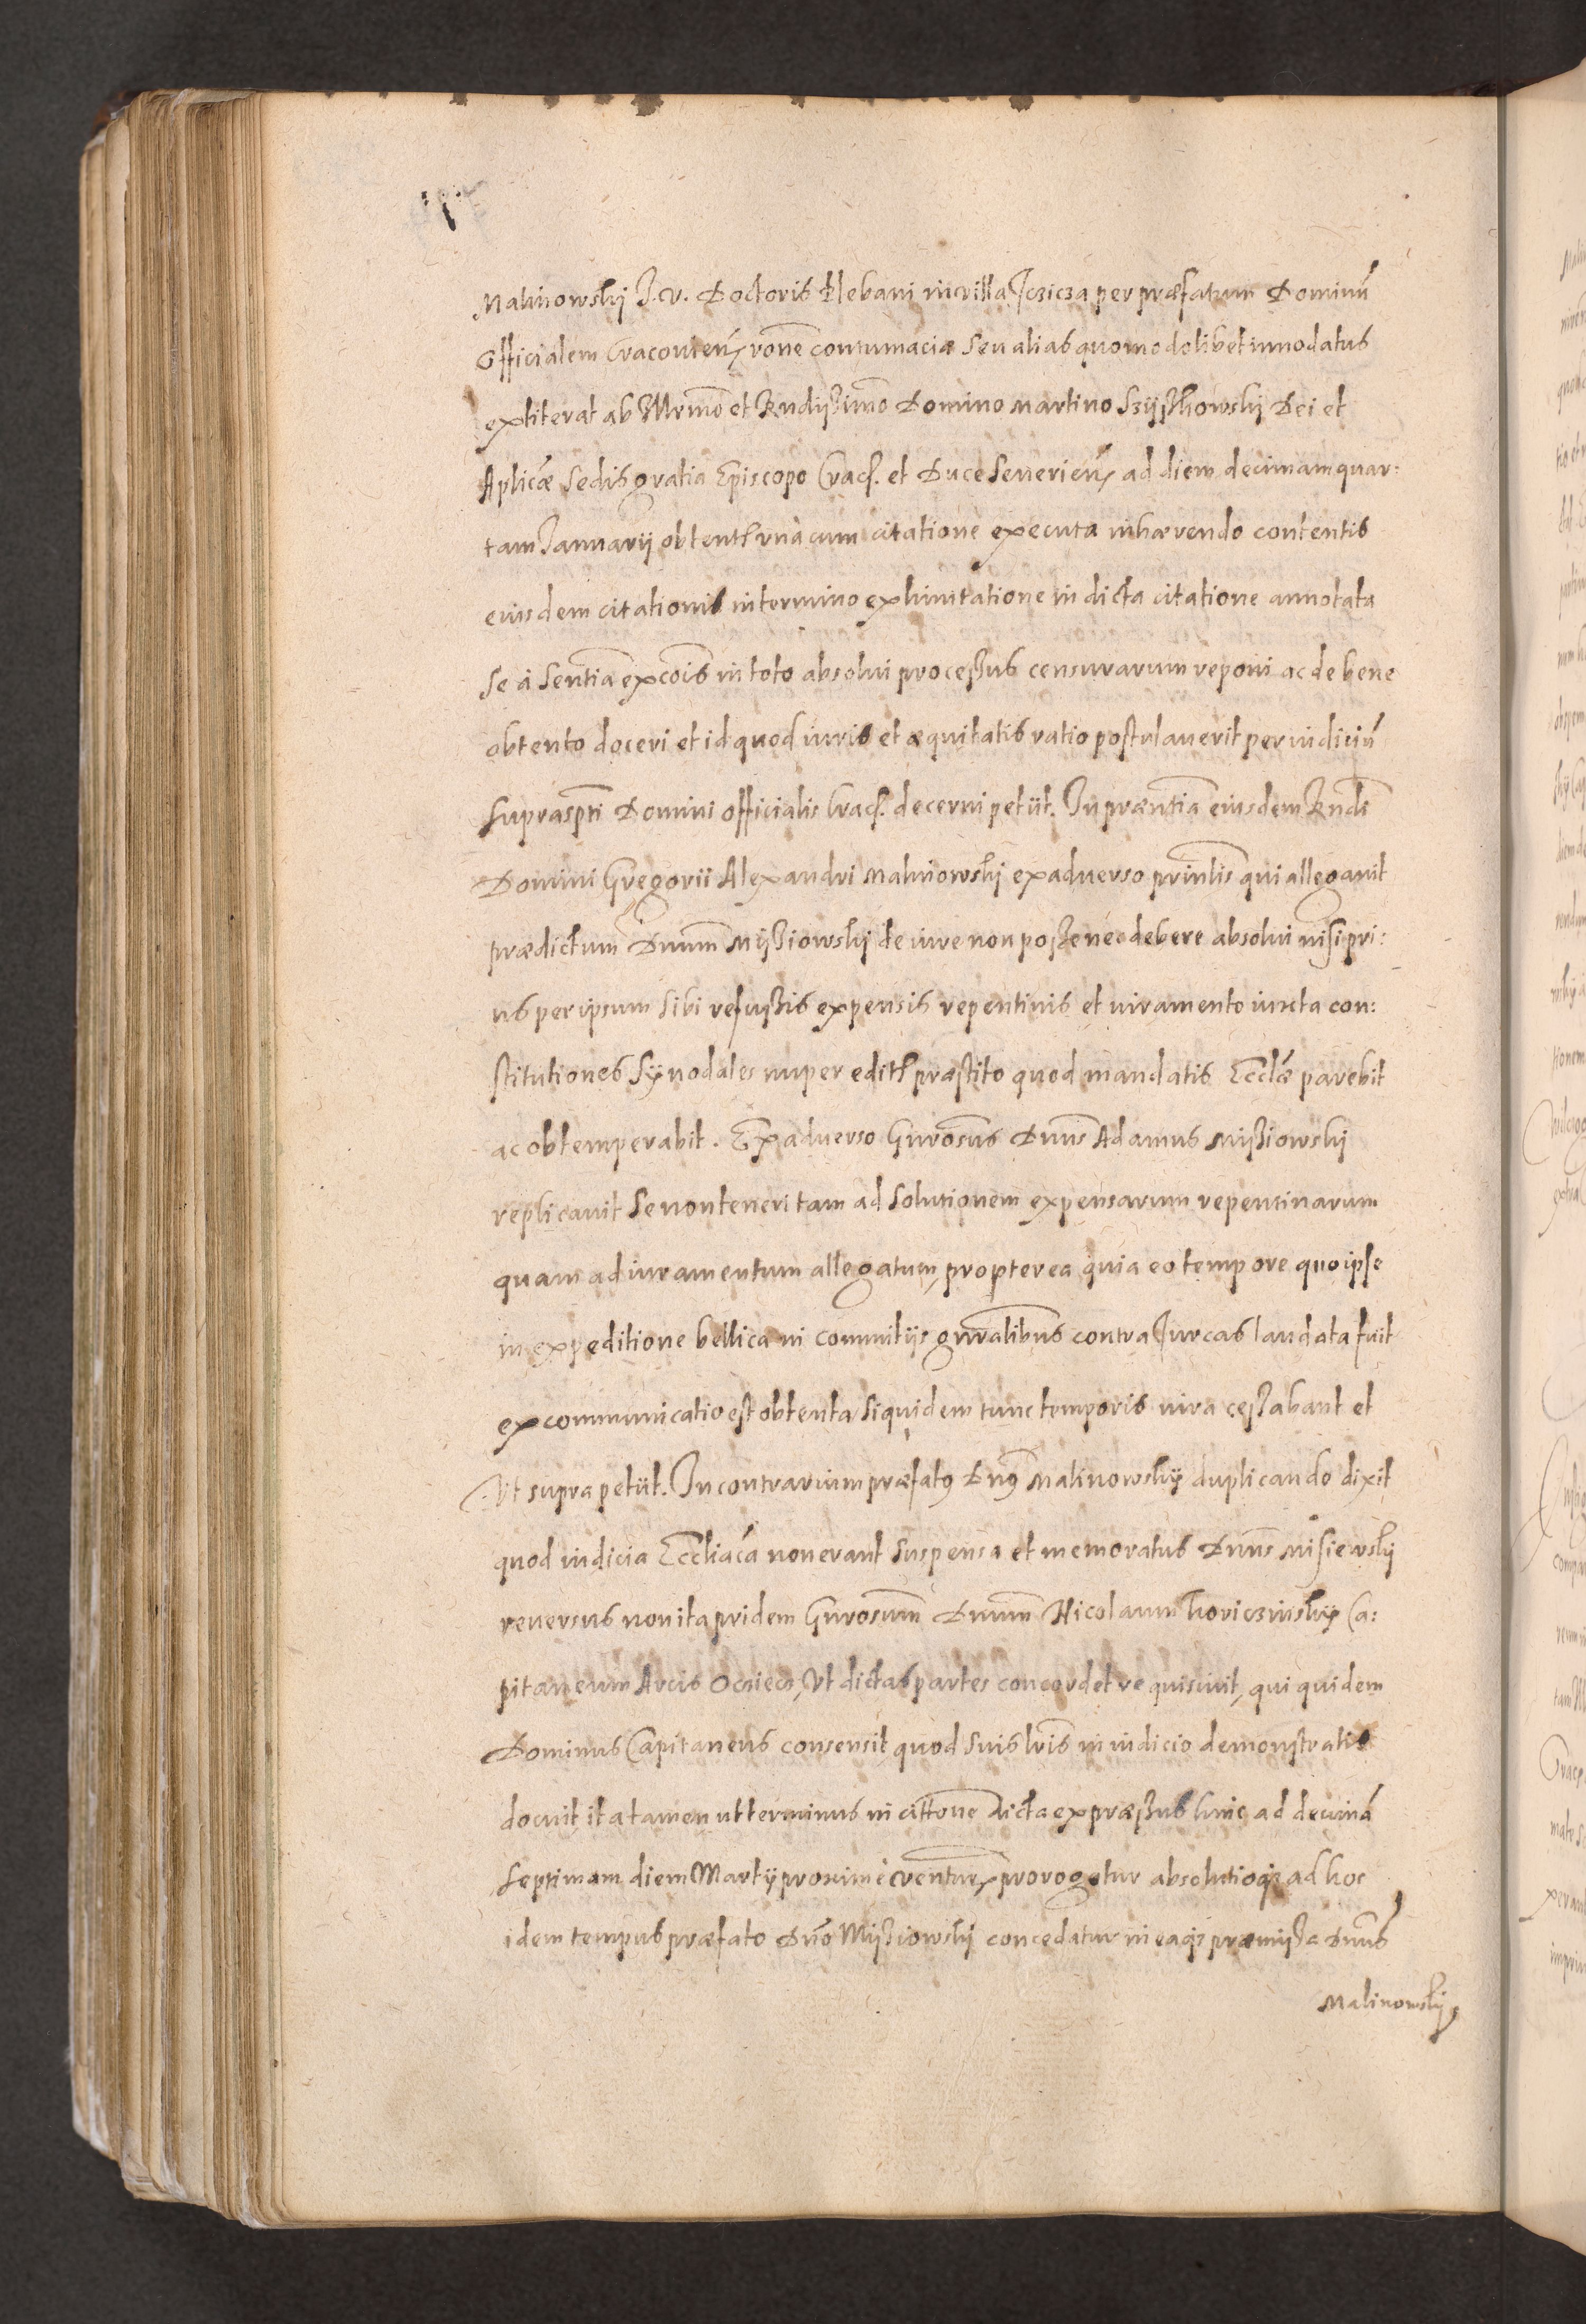 Malinowskij J. V. Doctoris Plebani in villa Iczicza per præfatum Dominũ
Officialem Cracovieñ, rõne contumaciæ seu alias quomodolibet innodatus
extiterat ab Illrmõ et Rndissimõ Domino Martino Szyszkowskij Dei et
Aplicæ Sedis gratia Episcopo Crac. et Duce Severieñ, ad diem decimam quar:
tam Januarij obtent una cum citatione executa inhærendo contentis
eiusdem citationis in termino ex limitatione in dicta citatione annotata
se à Sentiã excõis in toto absolvi processus censurarum reponi ac de bene
obtento doceri et id quod iuris et æquitatis ratio postulaverit per iudiciũ
supraspti Domini Officialis Crac. decerni petiit. In præntia eiusdem Rndi
Domini Gregorii Alexandri Malinowskij ex adverso prinlis qui allegavit
prædictum Dnum Misiowskij de iure non posse nec debere absolvi nisi pri:
us per ipsum sibi refussis expensis repentinis et iuramento iuxta con:
stitutiones Synodales nuper edit præstito quod mandatis Ecclæ parebit
ac obtemperabit. Ex adverso Gnrosus Dnus Adamus Misiowskij
replicavit se non teneri tam ad solutionem expensarum repentinarum
quam ad iuramentum allegatum, propterea quia eo tempore quo ipse
in expeditione bellica in comitijs gnralibus contra Turcas laudata fuit
excommunicatio est obtenta siquidem tunc temporis iura cessabant et
Ut supra petiit. In contrarium præfatus Dnus Malinowskij duplicando dixit
quod iudicia Eccliacã non erant suspensa et memoratus Dnus Misiewskij
reversus non ita pridem Gnrosum Dnum Nicolaum Koriczinskij Ca:
pitaneum Arcis Ocsiecz, Ut dictas partes concordet requisivit, qui quidem
Dominus Capitaneus consensit, quod suis lris in iudicio demonstratis
docuit ita tamen ut terminus in cittone dicta expræssus hinc ad decimã
septimam diem Martij proximè ventur, prorogetur absolutioq; ad hoc
idem tempus præfato Dno Misiowskij concedatur in eaq; præmissa Dnus
Malinowskij,